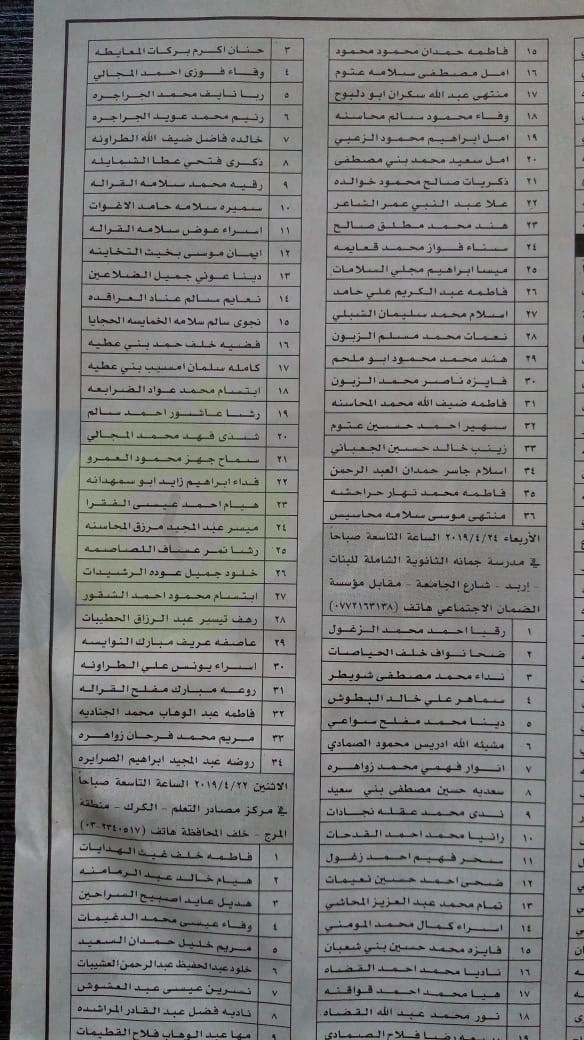 ١٥ فاطمه حمدان محمود محمود
١٦ امل مصطفى سلامه عتوم
١٧ منتهى عبد الله سكران ابو دلبوح
١٨ وفاء محمود سالم محاسنه
١٩ امل ابراهيم محمود الزعبي
٢٠ امل سعيد محمد بني مصطفى
٢١ ذكريات صالح محمود خوالده
٢٢ علا عبد النبي عمر الشاعر
٢٣ هند محمد مطلق صالح
٢٤ سناء فواز محمد قعايمه
٢٥ ميسا ابراهيم مجلي السلامات
٢٦ فاطمه عبد الكريم علي حامد
٢٧ اسلام محمد سليمان الشبلي
٢٨ نعمات محمد مسلم الزبون
٢٩ هند محمد محمود ابو ملحم
٣٠ فايزه ناصر محمد الزبون
٣١ فاطمه ضيف الله محمد المحاسنه
٣٢ سهير احمد حسين عتوم
٣٣ زينب خالد حسين الجعباني
٣٤ اسلام جاسر حمدان العبد الرحمن
٣٥ فاطمه محمد نهار حراحشه
٣٦ منتهى موسى سلامه محاسيس
الأربعاء ٢٠١٩/٤/٢٤ الساعة التاسعة صباحاً
في مدرسة جمانه الثانوية الشاملة للبنات
- إربد - شارع الجامعة - مقابل مؤسسة
الضمان الاجتماعي هاتف (٠٧٧٢١٦٣١٣٨)
١ رقيا احمد محمد الزغول
٢ ضحا نواف خلف الحياصات
٣ نداء محمد مصطفى شويطر
٤ سماهر علي خالد البطوش
٥ دينا محمد مفلح سواعي
٦ مشيئه الله ادريس محمود الصمادي
٧ انوار فهمي محمد زواهره
٨ سعديه حسين مصطفى بني سعيد
٩ ندى محمد عقله نجادات
١٠ رانيا محمد احمد القدحات
١١ سحر فهيم احمد زغول
١٢ ضحى احمد حسين نعيمات
١٣ تمام محمد عبد العزيز المحاشي
١٤ اسراء كمال محمد المومني
١٥ فايزه محمد حسين بني شعبان
١٦ ناديا محمد احمد القضاه
١٧ هيا محمد احمد قواقنه
١٨ نور محمد عبد الله القضاه
١٩ رضا فلاح الصمادي
٣ حنان اكرم بركات المعايطه
٤ وفاء فوزي احمد المجالي
٥ ربا نايف محمد الجراجره
٦ رنيم محمد عويد الجراجره
٧ خالده فاضل ضيف الله الطراونه
٨ ذكرى فتحي عطا الشمايله
٩ رقيه محمد سلامه القراله
١٠ سميره سلامه حامد الاغوات
١١ اسراء عوض سلامه القراله
١٢ ايمان موسى بخيت التخاينه
١٣ دينا عوني جميل الضلاعين
١٤ نعايم سالم عناد العراقده
١٥ نجوى سالم سلامه الخمايسه الحجايا
١٦ فضيه خلف حمد بني عطيه
١٧ كامله سلمان امسيب بني عطيه
١٨ ابتسام محمد عواد الضرابعه
١٩ رشا عاشور احمد سالم
٢٠ شدى فهد محمد المجالي
٢١ سماح جهز محمود العمرو
٢٢ فداء ابراهيم زايد ابو سمهدانه
٢٣ هيام احمد عيسى الفقرا
٢٤ ميسر عبد المجيد مرزق المحاسنه
٢٥ رشا نمر عساف اللصاصمه
٢٦ خلود جميل عوده الرشيدات
٢٧ ابتسام محمود احمد الشقور
٢٨ رهف تيسير عبد الرزاق الحطيبات
٢٩ عاصفه عريف مبارك النوايسه
٣٠ اسراء يونس علي الطراونه
٣١ روعه مبارك مفلح القراله
٣٢ فاطمه عبد الوهاب محمد الجناديه
٣٣ مريم محمد فرحان زواهره
٣٤ روضه عبد المجيد ابراهيم الصرايره
الاثنين ٢٠١٩/٤/٢٢ الساعة التاسعة صباحاً
في مركز مصادر التعلم - الكرك - منطقة
المرج - خلف المحافظة هاتف (٠٣-٢٣٤٠٥١٧)
١ فاطمه خلف غيث الهدايات
٢ هيام خالد عبد الرمامنه
٣ هديل عايد اصبيح السراحين
٤ وفاء عيسى محمد الدغيمات
٥ مريم خليل حمدان السعيد
٦ خلود عبد الحفيظ عبد الرحمن العشيبات
٧ نسرين عيسى عبد العشوش
٨ ناديه فضل عبد القادر المراشده
٩ مها عبد الوهاب فلاح القطيمات